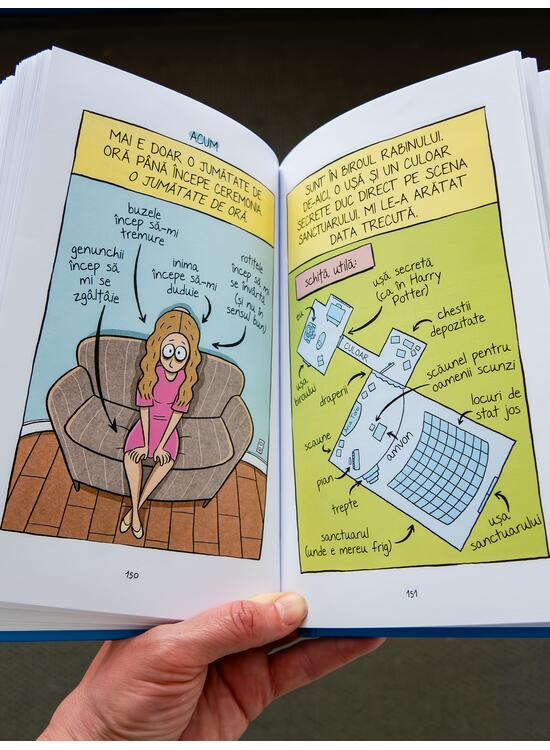 ACUM
MAI E DOAR O JUMĂTATE DE
ORĂ PÂNĂ ÎNCEPE CEREMONIA.
O JUMĂTATE DE ORĂ.
buzele
încep să-mi
tremure
genunchii
încep să
mi se
zgâlțâie
inima
începe să-mi
duduie
rotițele
încep să mi
se învârtă
(și nu în
sensul bun)
150
SUNT ÎN BIROUL RABINULUI.
DE-AICI, O UȘĂ ȘI UN CULOAR
SECRETE DUC DIRECT PE SCENA
SANCTUARULUI. MI LE-A ARĂTAT
DATA TRECUTĂ.
schiță utilă:
ușă secretă
(ca în Harry
Potter)
eu
chestii
depozitate
CULOAR
ușa
biroului
draperii
scăunel pentru
oamenii scunzi
locuri de
stat jos
scaune
amvon
pian
trepte
sanctuarul
(unde e mereu frig)
ușa
sanctuarului
151